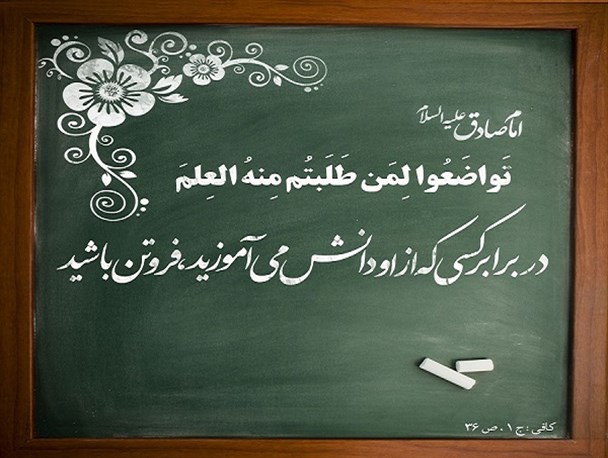 امام صادق علیه السلام
تَواضَعُوا لِمَن طَلَبتُم مِنهُ العِلمَ
در برابر کسی که از او دانش می آموزید، فروتن باشید
کافی : ج ۱ ، ص ۳۶